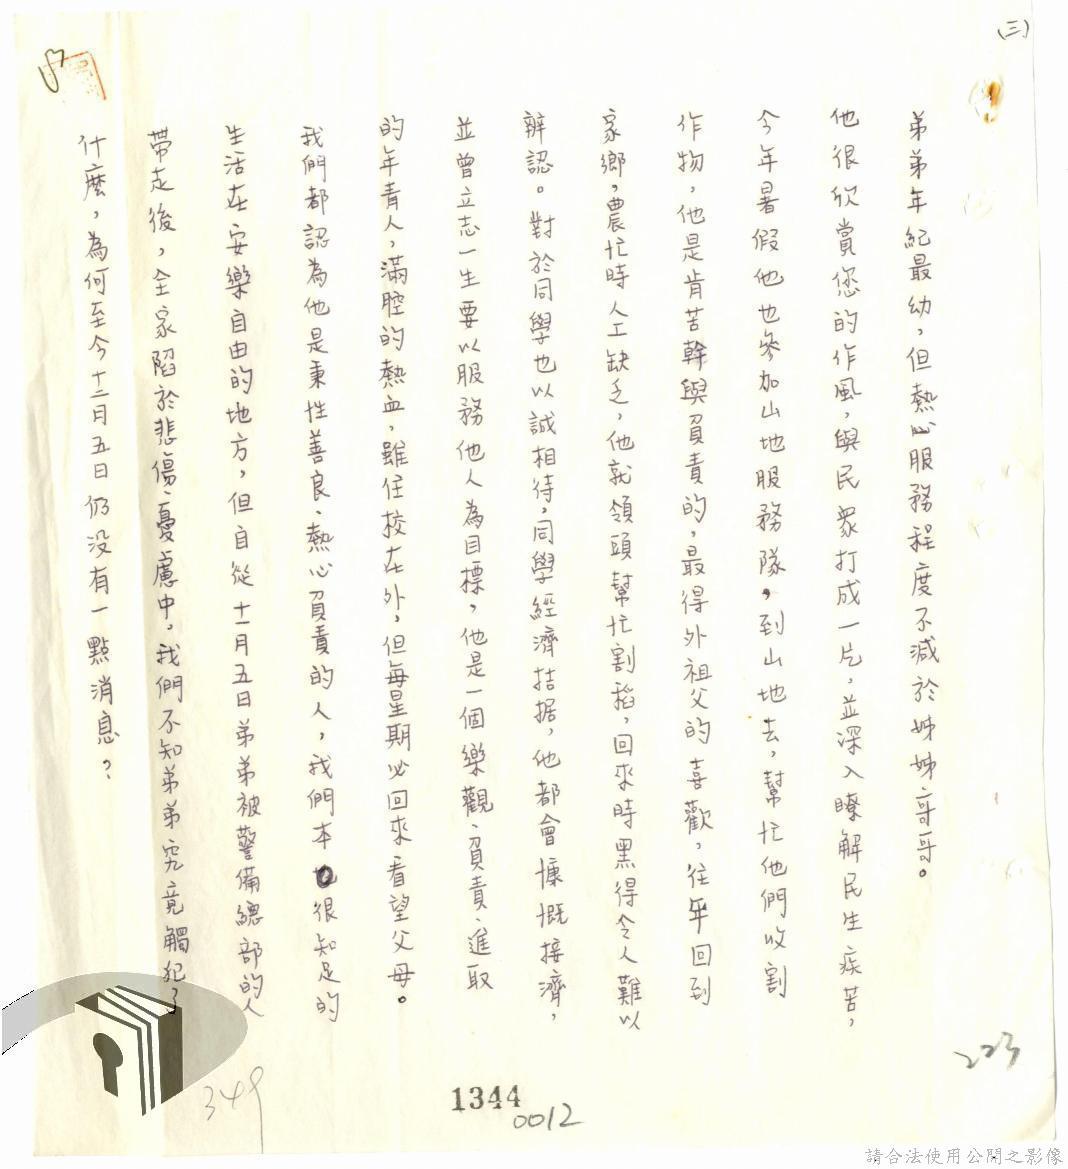 (三)
弟弟年紀最幼，但熱心服務程度不減於姊姊哥哥。
他很欣賞您的作風，與民眾打成一片，並深入瞭解民生疾苦，
今年暑假他也參加山地服務隊，到山地去，幫忙他們收割
作物，他是肯苦幹與負責的，最得外祖父的喜歡，往年回到
家鄉，農忙時人工缺乏，他就領頭幫忙割稻，回來時黑得令人難以
辨認。對於同學也以誠相待，同學經濟拮据，他都會慷慨接濟，
並曾立志一生要以服務他人為目標，他是一個樂觀、負責、進取
的年青人，滿腔的熱血，雖住校在外，但每星期必回來看望父母。
我們都認為他是秉性善良、熱心負責的人，我們本很知足的
生活在安樂自由的地方，但自從十一月五日弟弟被警備總部的人
帶走後，全家陷於悲傷、憂慮中。我們不知弟弟究竟觸犯了
什麼，為何至今十二月五日仍沒有一點消息？
223
349
1344
0012
請合法使用公開之影像